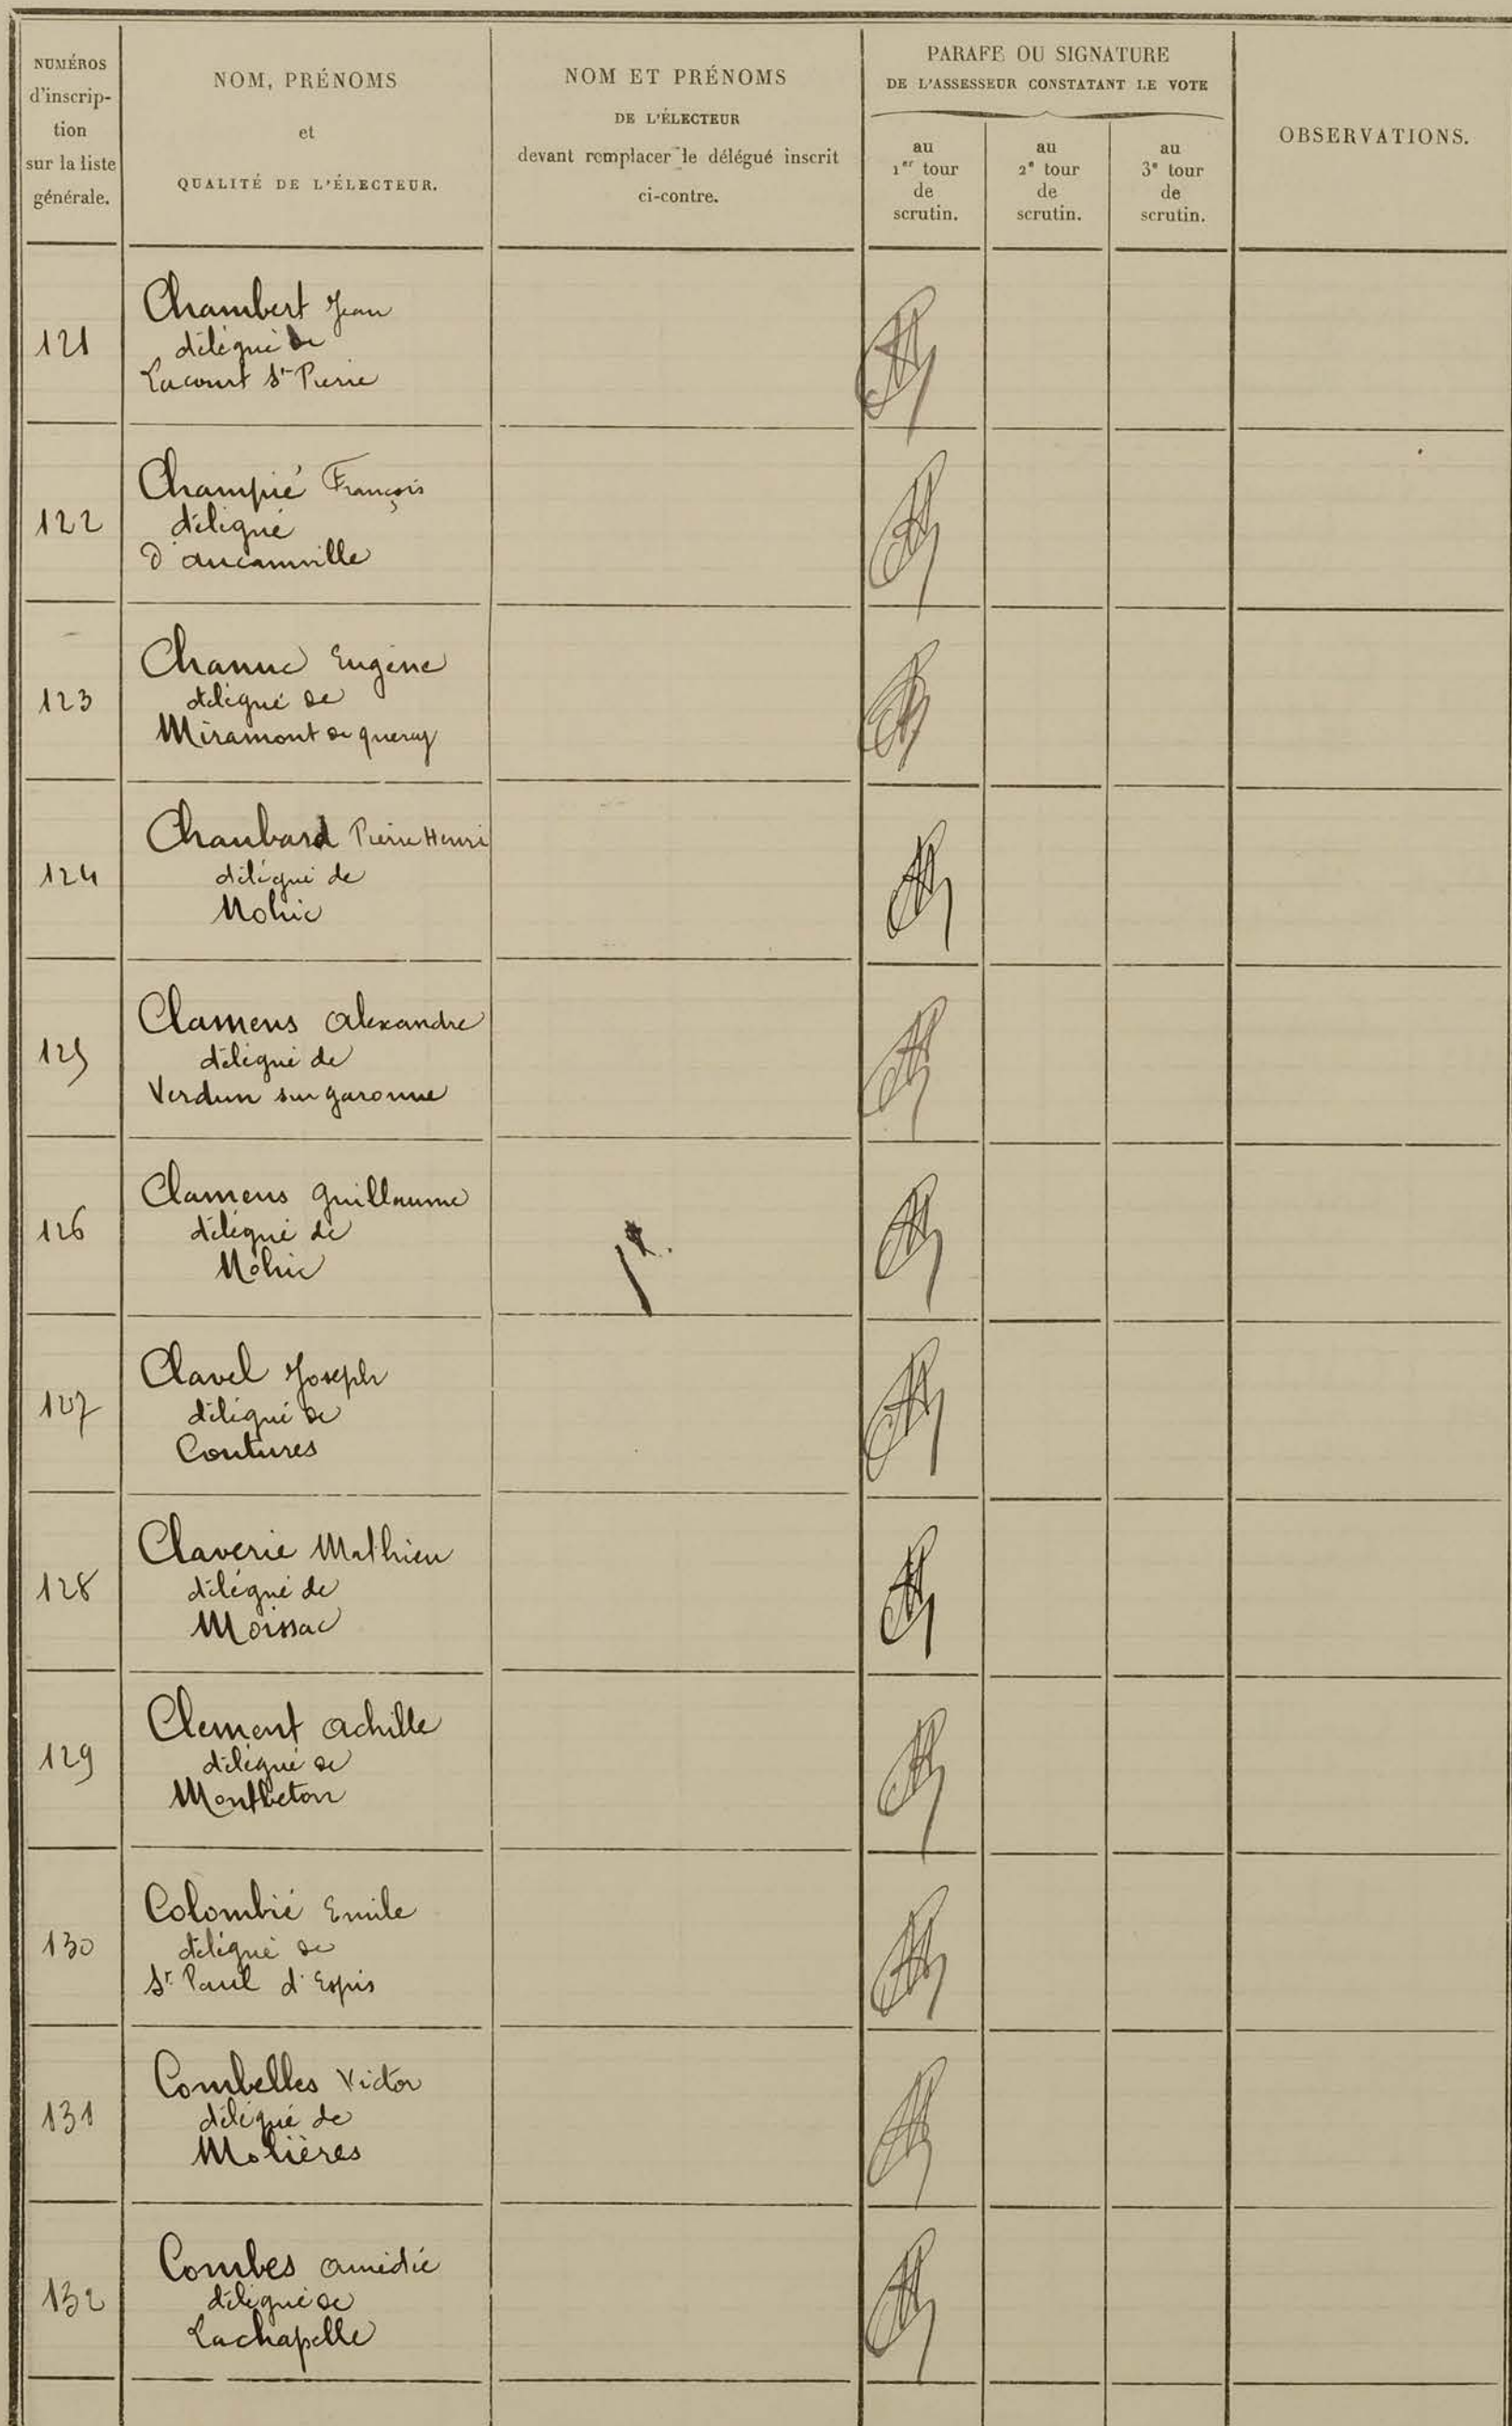 NUMÉROS
d'inscrip-
tion
sur la liste
générale.
NOM, PRÉNOMS
et
QUALITÉ DE L'ÉLECTEUR.
NOM ET PRÉNOMS
DE L'ÉLECTEUR
devant remplacer le délégué inscrit
ci-contre.
PARAFE OU SIGNATURE
DE L'ASSESSEUR CONSTATANT LE VOTE
au
1er tour
de
scrutin.
au
2e tour
de
scrutin.
au
3e tour
de
scrutin.
OBSERVATIONS.
121
Chambert Jean
délégué de
Lacourt St Pierre
122
Champié François
délégué
d'aucamville
123
Chanuc Eugène
délégué de
Miramont de quercy
124
Chaubard Pierre Henri
délégué de
Nohic
125
Clamens alexandre
délégué de
Verdun sur garonne
126
Clamens guillaume
délégué de
Nohic
127
Clavel Joseph
délégué de
Coutures
128
Claverie Mathieu
délégué de
Moissac
129
Clement achille
délégué de
Montbeton
130
Colombié Emile
délégué de
St Paul d'Espis
131
Combelles Victor
délégué de
Molières
132
Combes amédée
délégué de
Lachapelle